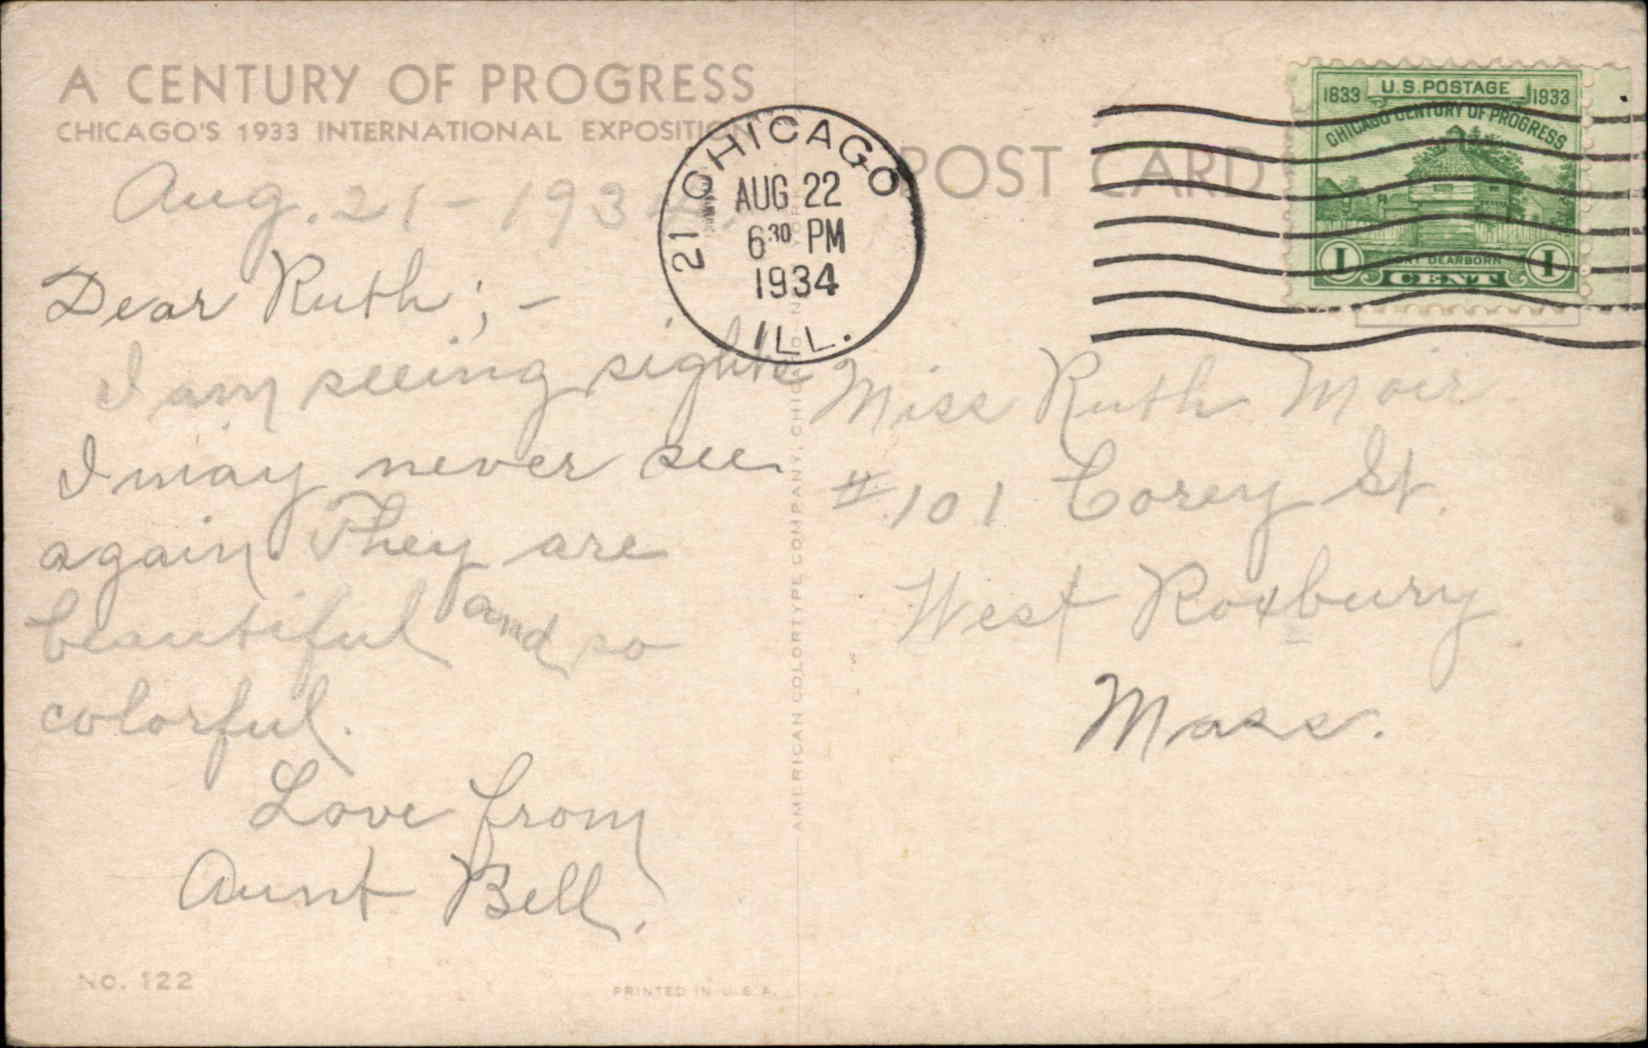 A CENTURY OF PROGRESS
CHICAGO'S 1933 INTERNATIONAL EXPOSITION
Aug. 21 - 1934
Dear Ruth; -
I am seeing sights
I may never see
again. They are
beautiful and so
colorful.
Love from
Aunt Bell.
NO. 122
PRINTED IN U.S.A.
AMERICAN COLORTYPE COMPANY, CHICAGO
21 CHICAGO
AUG 22
6 30 PM
1934
ILL.
POST CARD
U.S. POSTAGE
1833 1933
CHICAGO CENTURY OF PROGRESS
FORT DEARBORN
1 CENT 1
Miss Ruth Moir
# 101 Corey St.
West Roxbury
Mass.